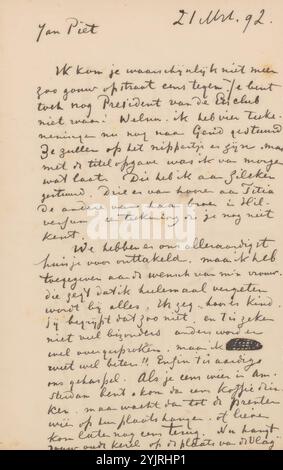 21 Mrt. 92.
Jan Piet
Ik kom je waarschijnlijk niet meer
zoo gauw op straat eens tegen. Je bent
toch nog President van de Etsclub
niet waar? Welnu. ik heb vier teeke-
neningen nu nog naar Genid gestuurd
Ze zullen op het nippertje er zijn, maar
met de titel opgave was ik van morgen
wat laat. Die heb ik aan Zilcken
gestuurd. Drie er van hooren aan Titia
De andere van haar broer in Hil-
versum teekening die je nog niet
kent.
We hebben er ons alleraardigst
huisje voor onttakeld. maar ik heb
toegegeven aan de wensch van m'n vrouw.
die zegt dat ik heelemaal vergeten
wordt bij alles. Ik zeg, hoor es kind.
Jij begrijpt dat zoo niet. en 't is zeker
niet veel bizonders anders word er
wel over gesproken. maar ik
weet wel beter!! Enfin 't is aardig
ons gehaspel. Als je eens weer in Am-
sterdam bent, kom dan eens koffie drin-
ken. maar wacht dan tot de prenten
weer op hun plaats hangen. of liever
kom later nog eens terug. Nu hangt
jouw oude kerel op de plaats van de Vlag
alamy